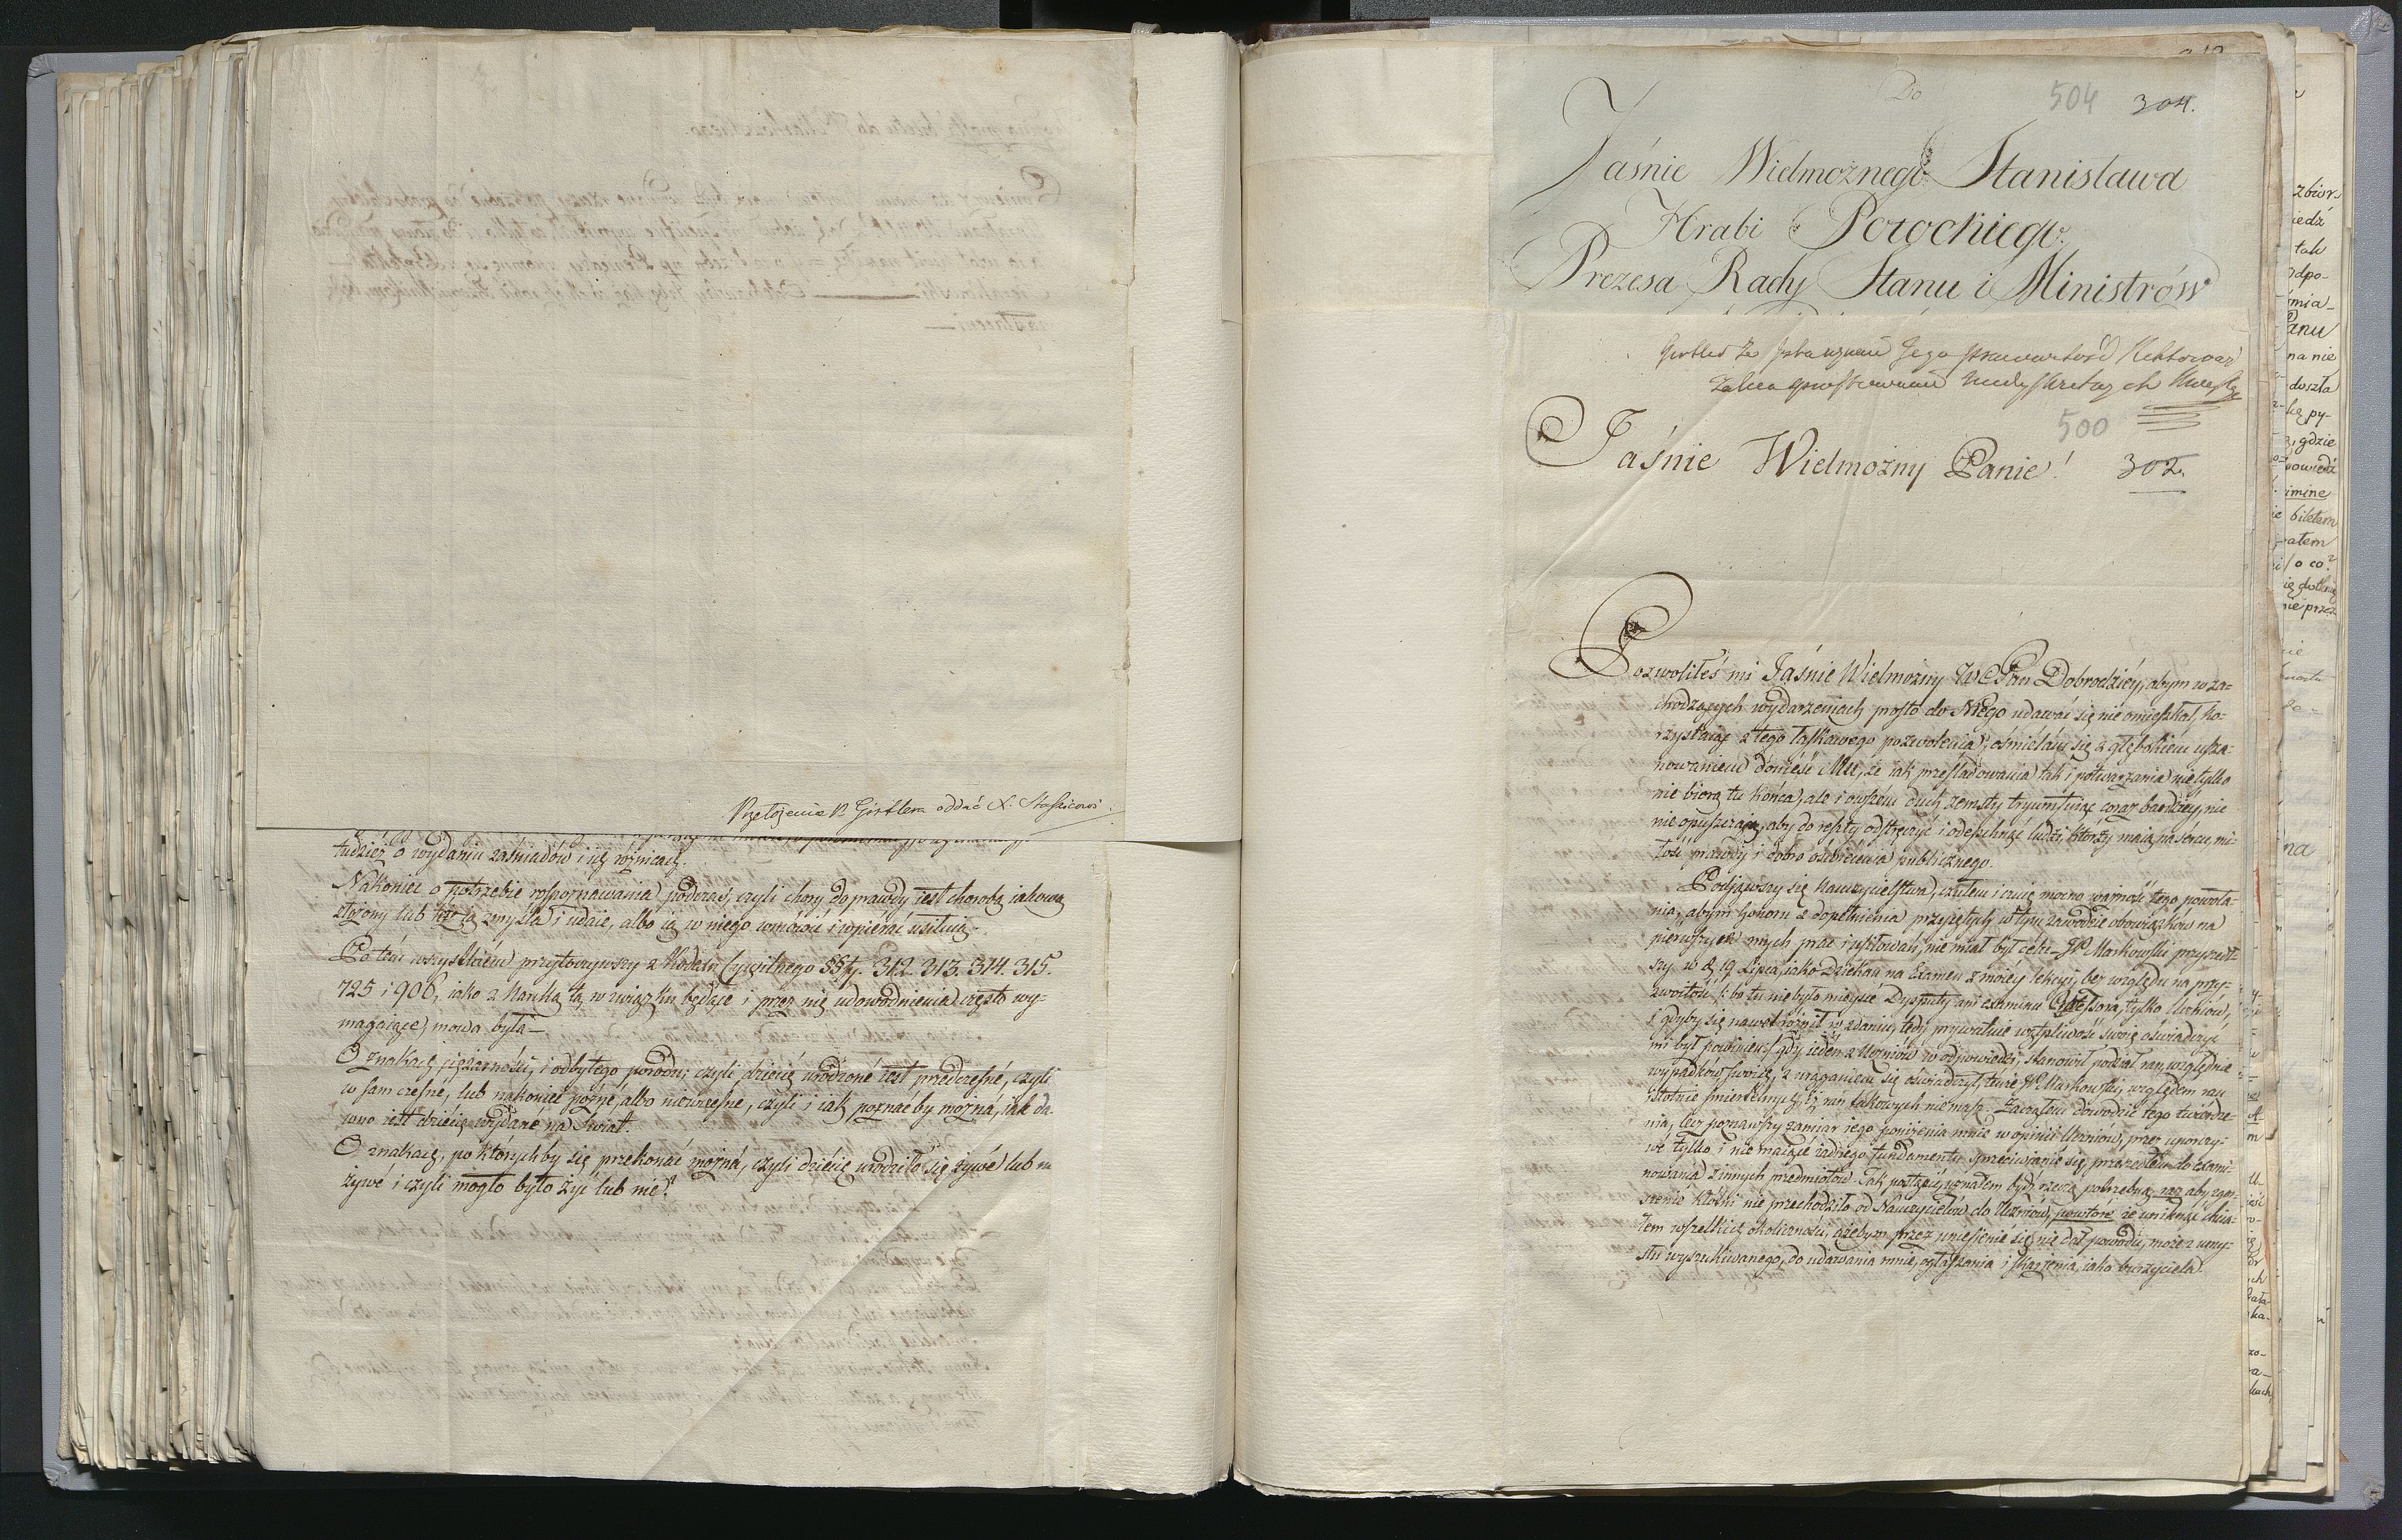 Przełożenie P. Girtlera oddać X. Staszicowi.
tudzież o wydaniu zaświadczeń i ich różnicach.
Nakoniec o potrzebie rozpoznawania podczas, czyli chory do prawdy iest chorobą iakową
złożony lub też ią zmyśla i udaie, albo ią w niego wmówić i wpierać usiłuią.
Po tém wszystkiém przytoczywszy z Kodexu Cywilnego §§fy. 312. 313. 314. 315.
725 i 906, iako z Nauką tą w związku będące i przez nię udowodnienia często wy-
magaiące, mowa była —
O znakach ciężarności, i odbytego porodu; czyli dziecię urodzoné iest przedczesné, czyli
w sam czesné, lub nakoniec pożné, albo niewczesne, czyli i iak poznać by możná, iak da-
wno iest dziécię wydané na świat.
O znakach, po których by się przekonać możná, czyli dziécię urodziło się żywé lub nie
żywé i czyli mogło było żyć lub nie?
Do
504 304.
Jaśnie Wielmożnego Stanisława
Hrabi Potockiego.
Prezesa Rady Stanu i Ministrów
500
Jaśnie Wielmożny Panie! 302.
Pozwoliłeś mi Jaśnie Wielmożny WPan Dobrodziéy, abym w za-
chodzących wydarzeniach prosto do Niego udawać się nie omieszkał, ko-
rzystaiąc z tego łaskawego pozwolenia, ośmielam się z głębokiém usza-
nowaniem donieść Mu, że iak prześladowania tak i potwarzania nie tylko
nie biorą tu końca, ale i owszém duch zemsty tryumfuiąc coraz bardziéy, nic
nie opuszczaią, aby do reszty odstręczyć i odepchnąć ludzi, którzy maią na sercu mi-
łość prawdy i dobro oświecenia publicznego.
Podjąwszy się Nauczycielstwa, czułem i czuię mocno ważność tego powoła-
nia, abym honoru z dopełnienia przyjętych w tym zawodzie obowiązków na
pierwszych mych prac i usiłowań, nie miał być celu. JP. Markowski przyszedł-
szy w d. 19 Lipca iako Dziekan na Examen z moiéy lekcyi, bez względu na przy-
zwoitość /: bo tu nie było mieysce Dysputy ani examinu Professora, tylko Uczniów,
i gdyby się nawet różnił w zdaniu, tedy prywatnie wątpliwość swoię oświadczyć
mi był powinien :/ gdy ieden z Uczniów w odpowiedzi, stanowił podział ran względnie
wypadków swoich, z urąganiem się oświadczył tenże JP. Markowski, względem ran
istotnie śmiertelnych, iż ran takowych nie masz. Zacząłem dowodzić tego twierdze-
nia, lecz poznawszy zamiar iego poniżenia mnie w opinii Uczniów, przez uporczy-
wé tylko i nie maiącé żadnego fundamentu sprzeciwianie się, przeszedłem do exami-
nowania z innych przedmiotów. Tak postąpić uznałem bydź rzeczą potrzebną, raz aby zgor-
szenié kłótni nie przechodziło od Nauczycielów do Uczniów, powtóré że uniknąć chcia-
łem wszelkich okoliczności, ażebym przez uniesienié się, nie dał powodu, może z umy-
słu wyszukiwanego, do udawania mnie, ogłaszania i skarżenia, iako burzyciela.